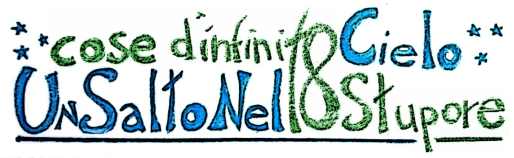 cose d'infinito Cielo
Un Salto Nel 18 Stupore